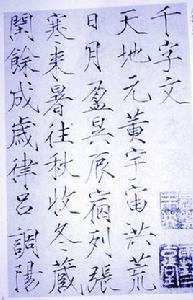 千字文
天地元黃宇宙洪荒
日月盈昃辰宿列張
寒來暑往秋收冬藏
閏餘成歲律呂調陽